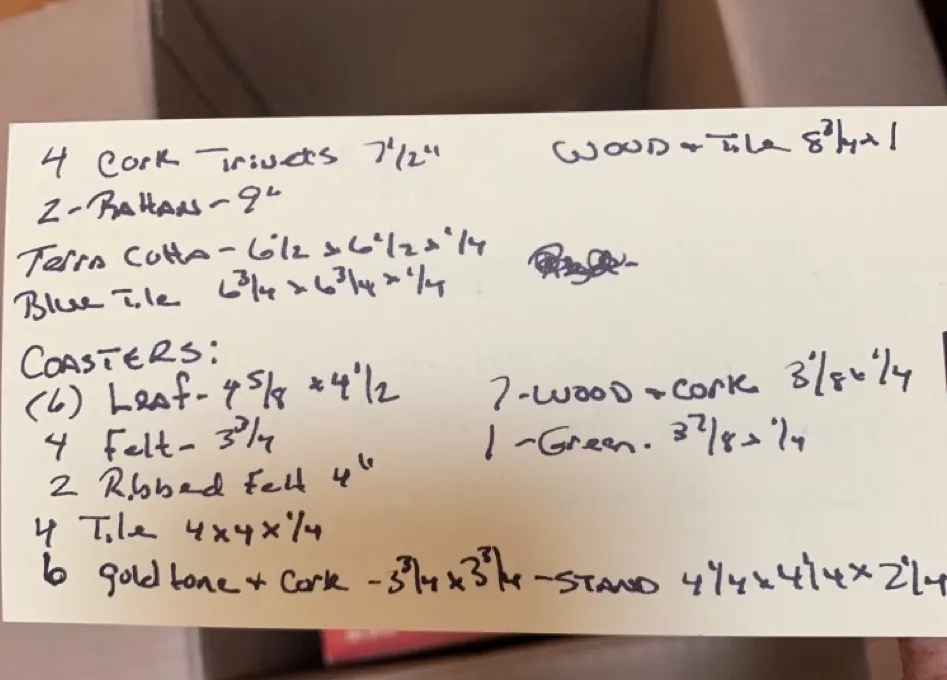 4 Cork Trivets 7 1/2" WOOD + Tile 8 3/4 x 1
2 - Rattan - 9"
Terra Cotta - 6 1/2 x 6 1/2 x 1/4
Blue Tile 6 3/4 x 6 3/4 x 1/4
COASTERS:
(6) Leaf - 4 5/8 x 4 1/2 7 - WOOD + CORK 3 1/8 x 1/4
4 Felt - 3 3/4 1 - Green. 3 7/8 x 1/4
2 Ribbed Felt 4"
4 Tile 4 x 4 x 1/4
6 gold tone + Cork - 3 3/4 x 3 3/4 - STAND 4 1/4 x 4 1/4 x 2 1/4